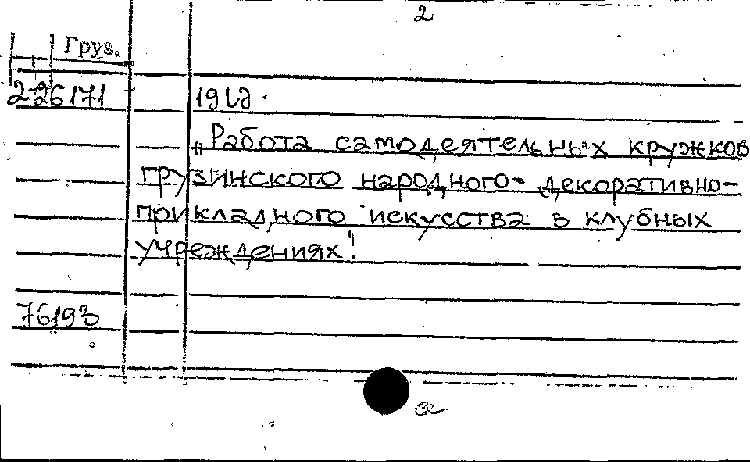 2
Груз.
2-26171
„Работа самодеятельных кружков
грузинского народного- декоративно-
прикладного искусства в клубных
учреждениях!
76193